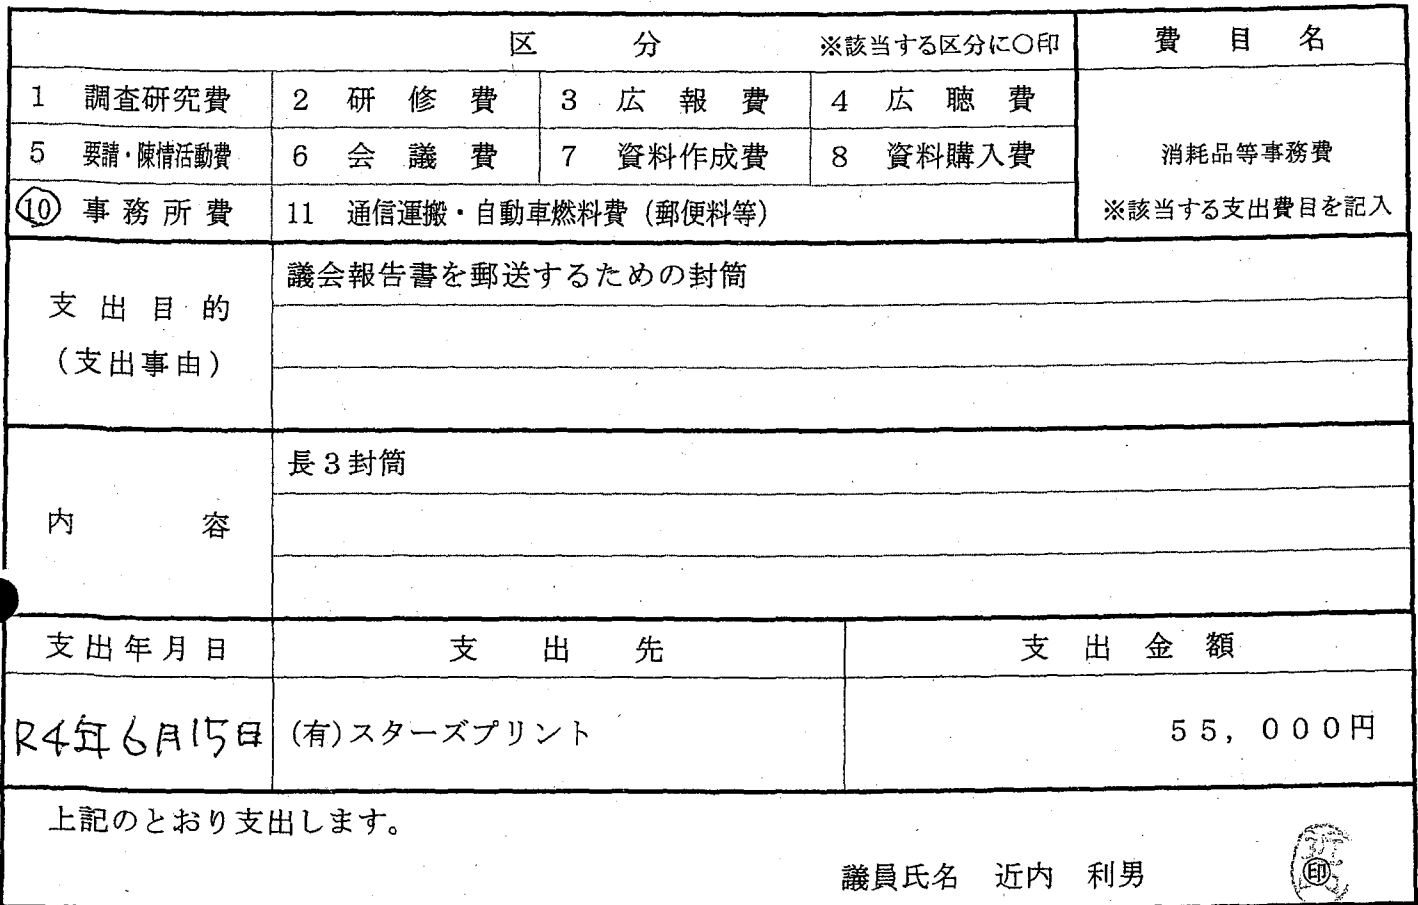 区 分 ※該当する区分に○印 費 目 名
1 調査研究費 2 研 修 費 3 広 報 費 4 広 聴 費
5 要請・陳情活動費 6 会 議 費 7 資料作成費 8 資料購入費 消耗品等事務費
10 事務所費 11 通信運搬・自動車燃料費(郵便料等) ※該当する支出費目を記入
支 出 目 的
(支出事由)
議会報告書を郵送するための封筒
内 容
長3封筒
支出年月日 支 出 先 支 出 金 額
R4年6月15日 (有)スターズプリント 55,000円
上記のとおり支出します。
議員氏名 近内 利男 ㊞